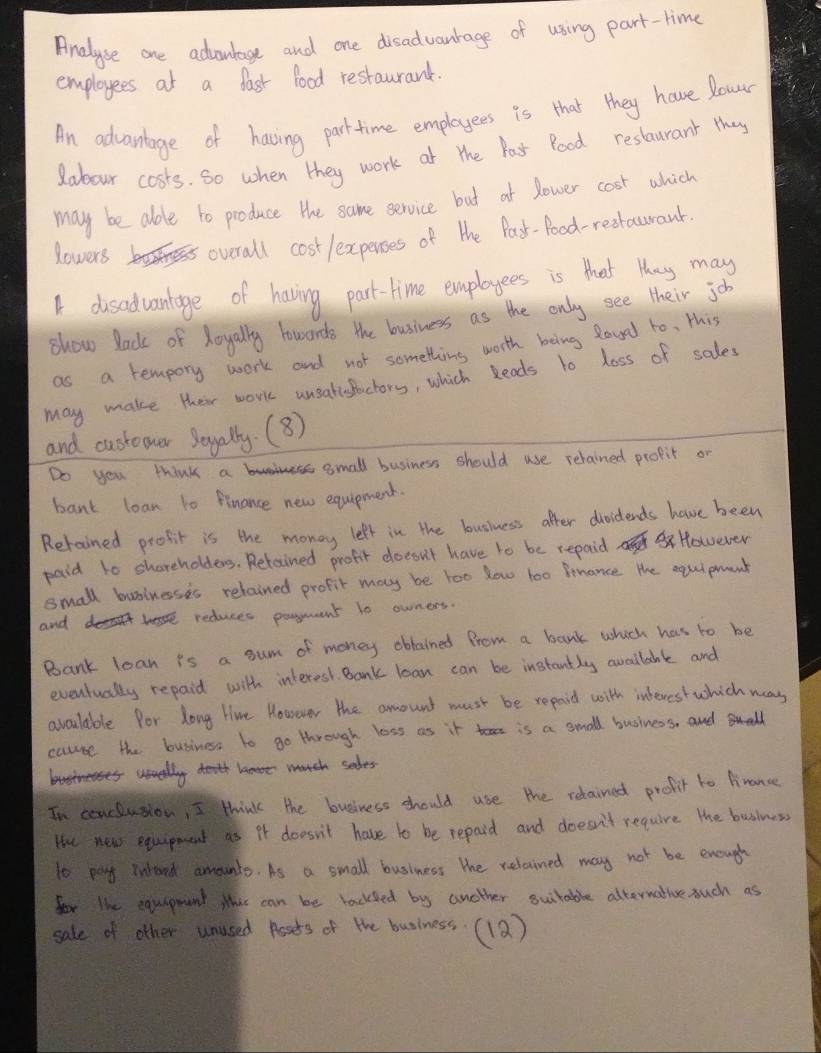 Analyse one advantage and one disadvantage of using part-time
employees at a fast food restaurant.
An advantage of having part time employees is that they have lower
labour costs. So when they work at the fast food restaurant they
may be able to produce the same service but at lower cost which
lowers business overall cost/expenses of the fast-food-reataurant.
A disadvantage of having part-time employees is that they may
show lack of loyalty towards the business as the only see their job
as a tempory work and not something worth being loyal to, this
may make their work unsatisfactory, which leads to loss of sales
and customer loyalty. (8)
Do you think a business small business should use retained profit or
bank loan to finance new equipment.
Retained profit is the money left in the business after dividends have been
paid to shareholders. Retained profit doesn't have to be repaid and However
small businesses retained profit may be too low too finance the equipment
and doesn't have reduces payment to owners.
Bank loan is a sum of money obtained from a bank which has to be
eventually repaid with interest. Bank loan can be instantly available and
available for long time However the amount must be repaid with interest which may
cause the business to go through loss as it is a small business. and small
businesses usually don't have much sales
In conclusion, I think the business should use the retained profit to finance
the new equipment as it doesn't have to be repaid and doesn't require the business
to pay amounts. As a small business the retained may not be enough
for the equipment this can be tackled by another suitable alternative such as
sale of other unused Assets of the business. (12)